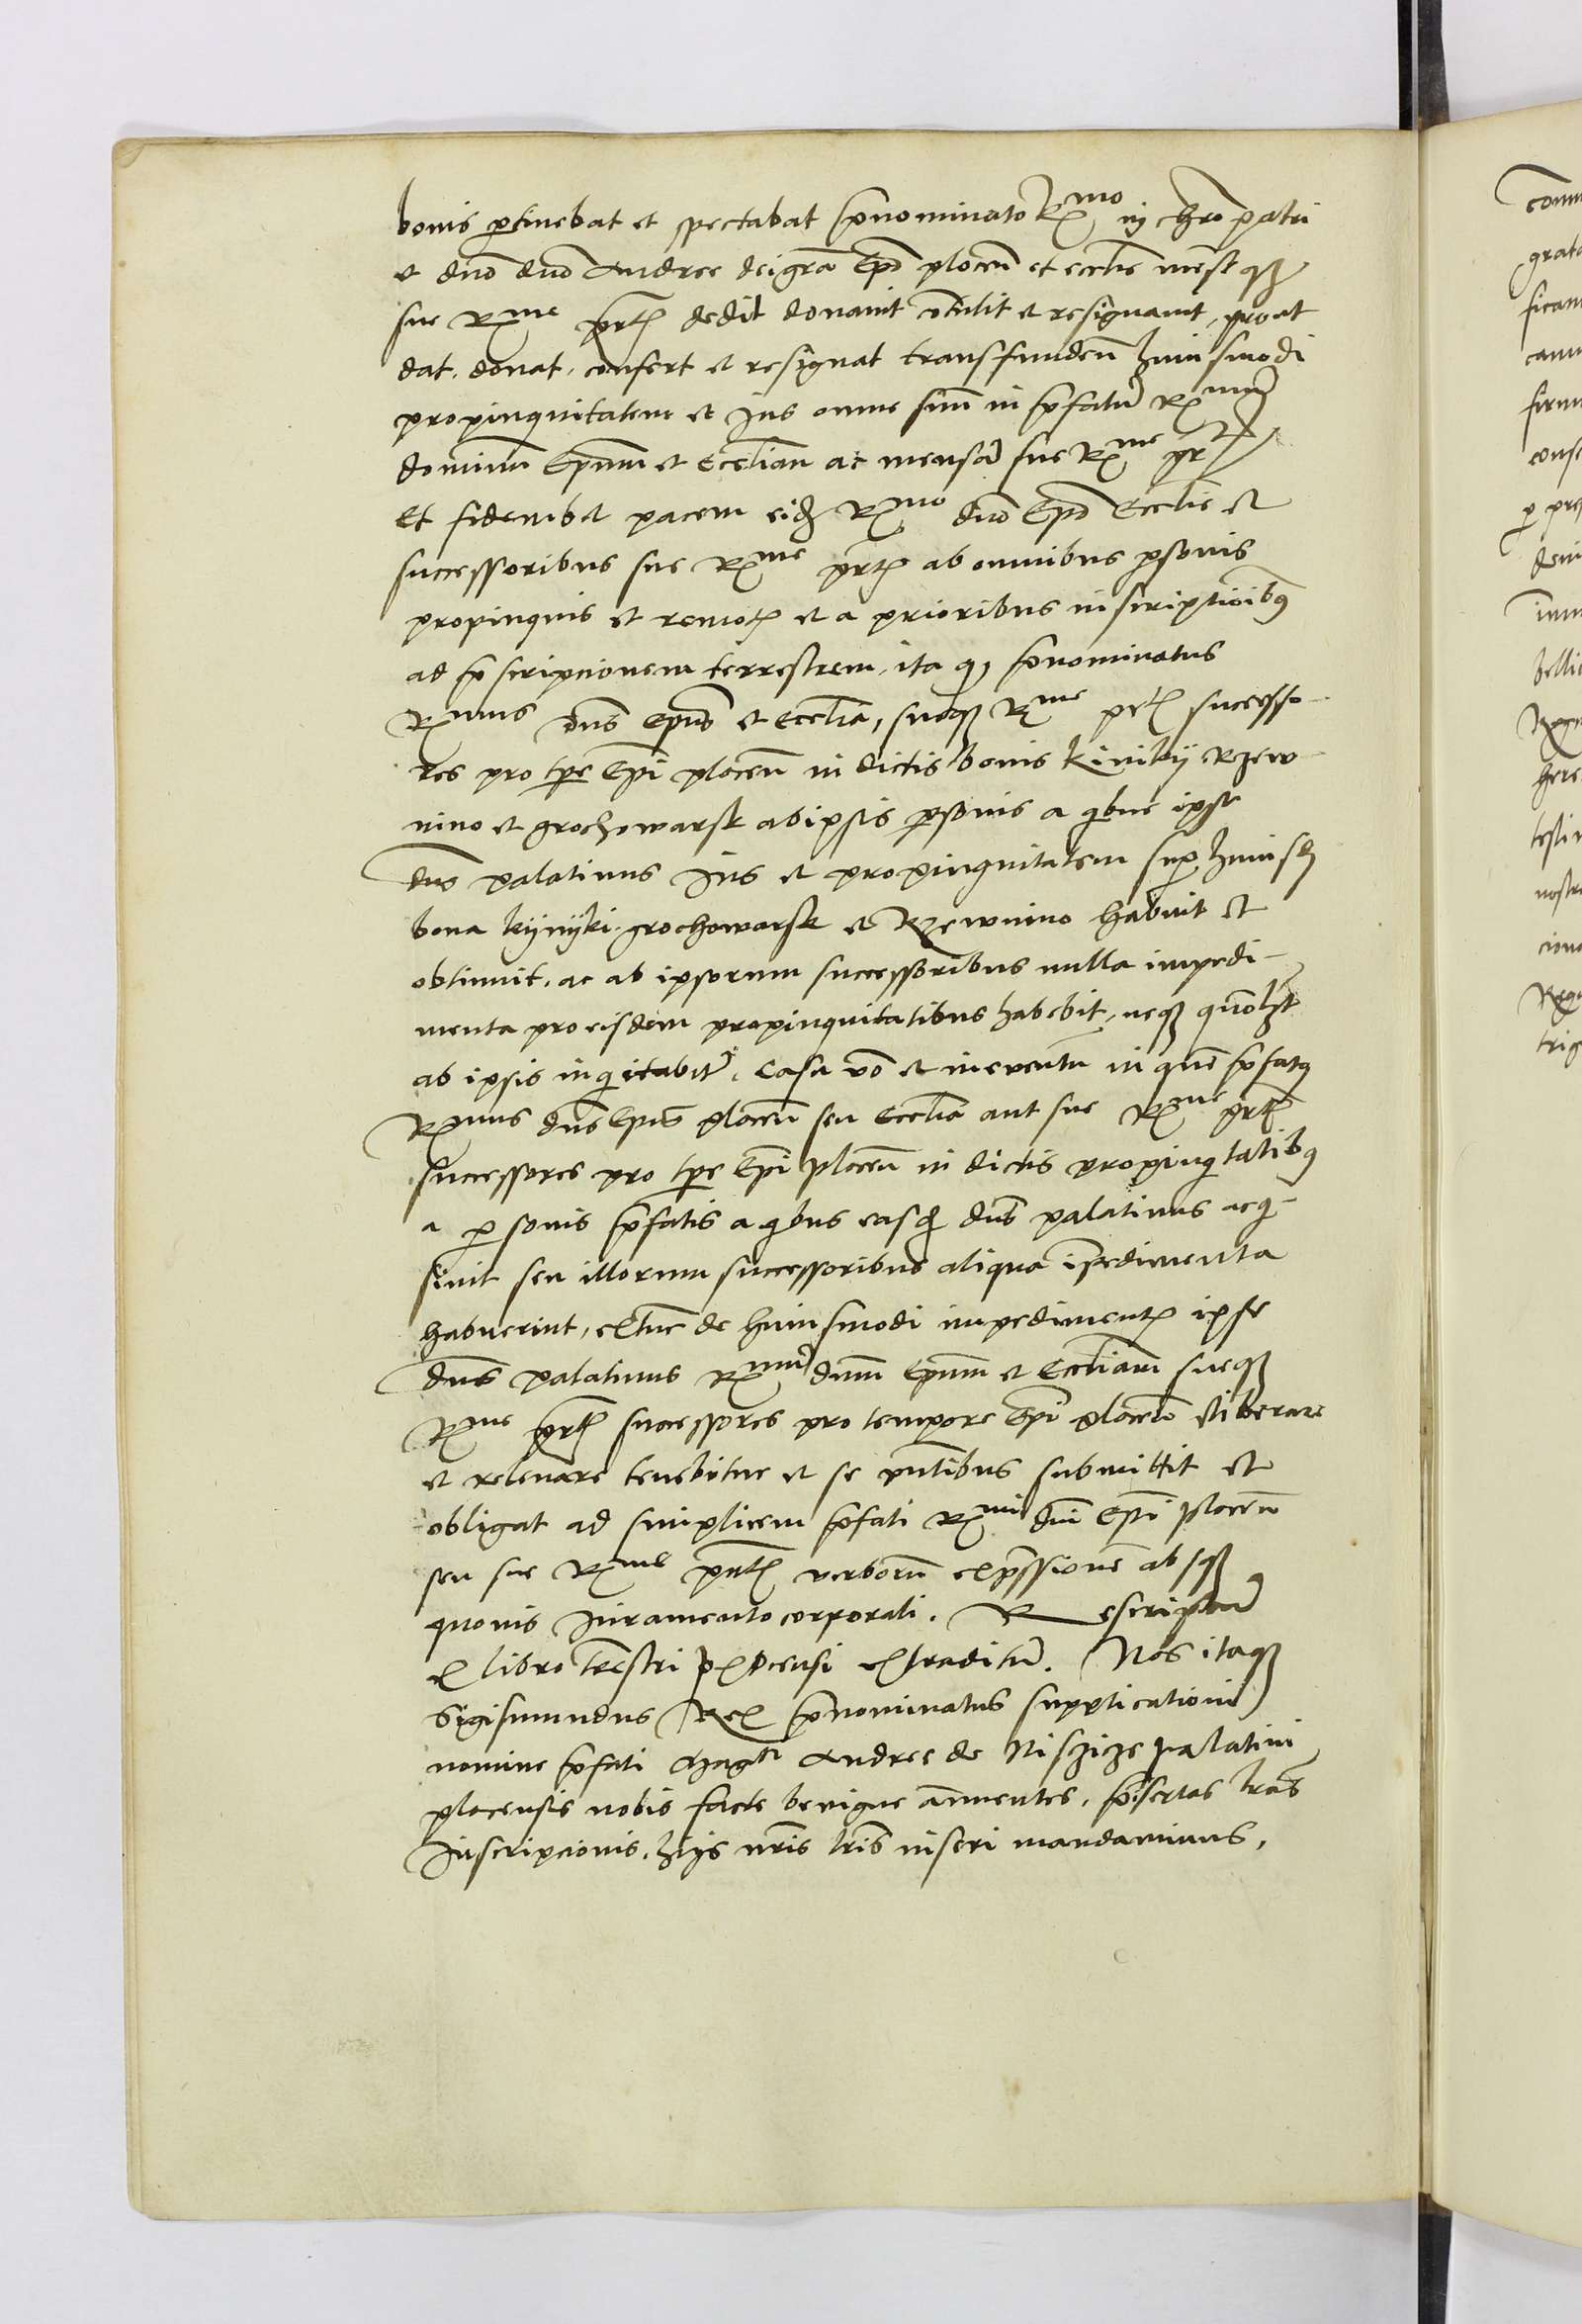 bonis ptinebat et spectabat pnominato Rmo in chro patri
et dno dno Andree dei gra Epo plocen et ecclie mensẹq3
sue Rme prt dedit donavit ctulit et resignavit, prout
dat, donat, confert et resignat transfunden huiusmodi
propinquitatem et Ius omne suu in pfatu Rmu
dominum Epum et Eccliam ac mensa sue Rme prt
Et fideiubet pacem eid Rmo dno Epo Ecclie et
successoribus sue Rme prt ab omnibus psonis
propinquis et remot et a prioribus inscriptioib9
ad pscripcionem terrestrem, ita q pnominatus
Rmus dns Epus et Ecclia, sueq3 Rme prt successo-
res pro tpe Epi plocen in dictis bonis kiniky Rzew-
nino et grochowarsk ab ipsis psonis a qbus ipse
dns palatinus Ius et propinquitatem sup huiusd
bona kynyki grochowarsk et Rzewnino habuit et
obtinuit, ac ab ipsorum successoribus nulla impedi-
menta pro eisdem propinquitatibus habebit, neq3 quolzt
ab ipsis inqietabit. Casu vo et in eventu in que pfat9
Rmus dns Epus plocen seu Ecclia aut sue Rme prt
successores pro tpe Epi plocen in dictis propinqtatib9
a psonis pfatis a qbus easd dns palatinus acq-
sivit seu illorum successoribus aliqua ipedimenta
habuerint, extunc de huiusmodi impediment ipse
dns palatinus Rmu dnm Epum et Eccliam sueq3
Rme prt successores pro tempore Epi plocen liberare
et relevare tenebitur et se pntibus submittit et
obligat ad simplicem pfati Rmi dni Epi plocen
seu sue Rme prt verboru expssione absq3
quovis Iuramento corporali. Rescriptu
ex libro terrestri extraditu. Nos itaq3
Sigismundus Rex pnominatus supplicationi
nomine pfati Magci Andree de Nisczicze palatini
plocensis nobis facte benigne annuentes, pisertas lras
Inscripcionis, hijs nris lris inseri mandavimus,